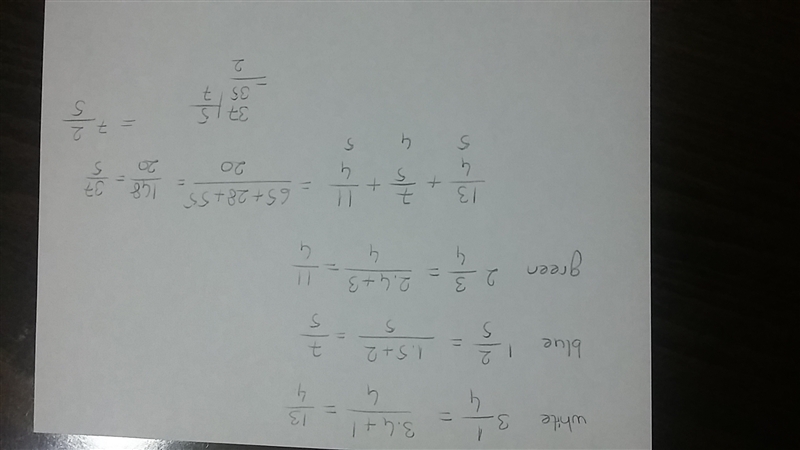 white 3 1/4 = 3.4+1/4 = 13/4
blue 1 2/5 = 1.5+2/5 = 7/5
green 2 3/4 = 2.4+3/4 = 11/4
13/4 + 7/5 + 11/4 = 65+28+55/20 = 148/20 = 37/5
5 4 5
37 | 5
35 7
=
2
= 7 2/5